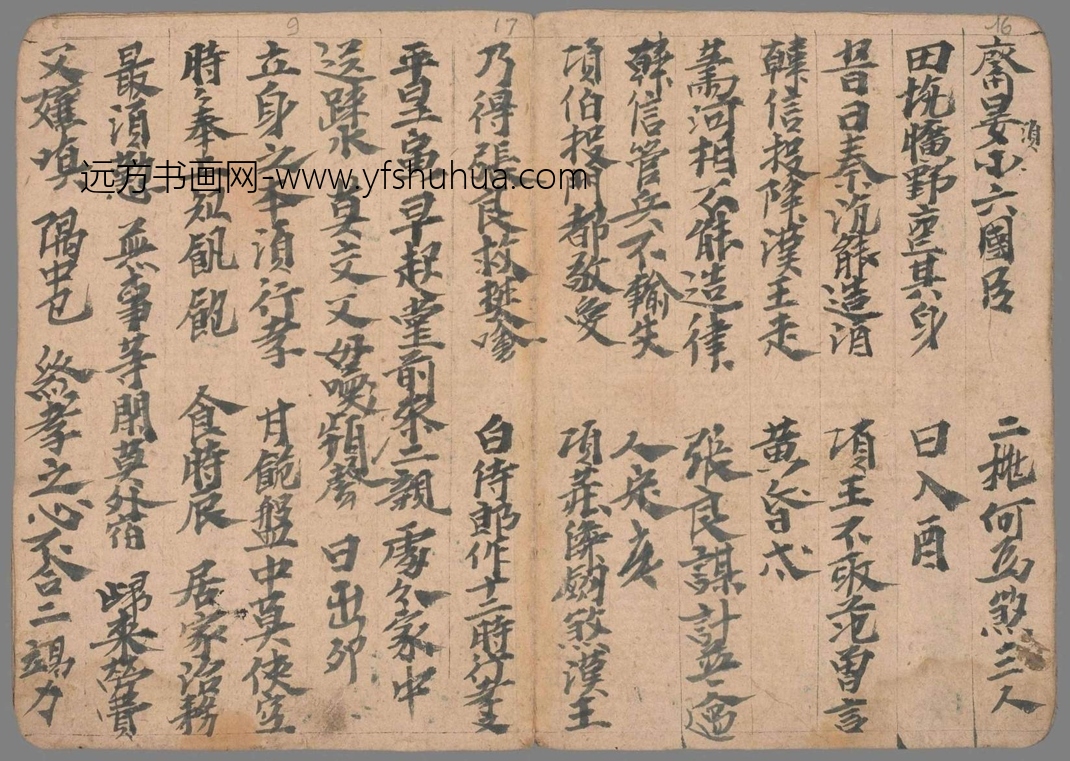 16
齋晏小六國臣 二桃何為煞三人
須
田 驕野 其身 日入酉
昔日秦 能造消 項王不取范曾言
韓信投陣漢王走 黃昏戌
蕭河相 能造律 張良謀計並
韓信管兵不輸失 人定亥
項伯投 門都敬愛 項莊 劒煞漢王
17
乃得張良救樊噲 白侍郎作十二時行孝文
平旦寅早起堂前 二親 處分家中
送疎水莫交父母喚頻聲 日出卯
立身之本須行孝 甘 盤中莫使空
9
時時奉 知飢飽 食時辰 居家治務
最須 無事等閑莫外宿 歸來
父孃嗔 隅中巳 終孝之心不合二 竭力
远方书画网-www.yfshuhua.com